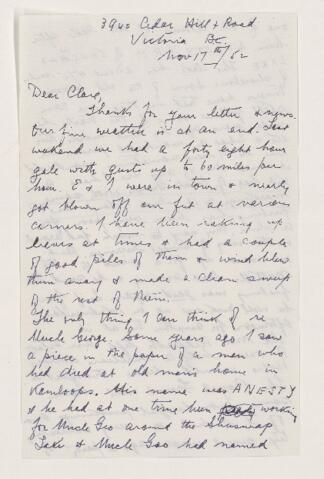 3940 Cedar Hill x Road
Victoria BC
Nov 17th/52
Dear Clare,
Thanks for your letter & news.
Our fine weather is at an end. Last
wekend we had a forty eight hour
gale with gusts up to 60 miles per
hour. E & I were in town & nearly
got blown off our feet at various
corners. I have been raking up
leaves at times & had a couple
of good piles of them & wind blew
them away & made a clean sweep
of the rest of them.
The only thing I can think of re
Uncle George. Some years ago I saw
a piece in the paper of a man who
had died at old mans home in
Kamloops. His name was ANESTY
& he had at one time been working
for Uncle Geo around the Shuswap
Lake & Uncle Geo had named